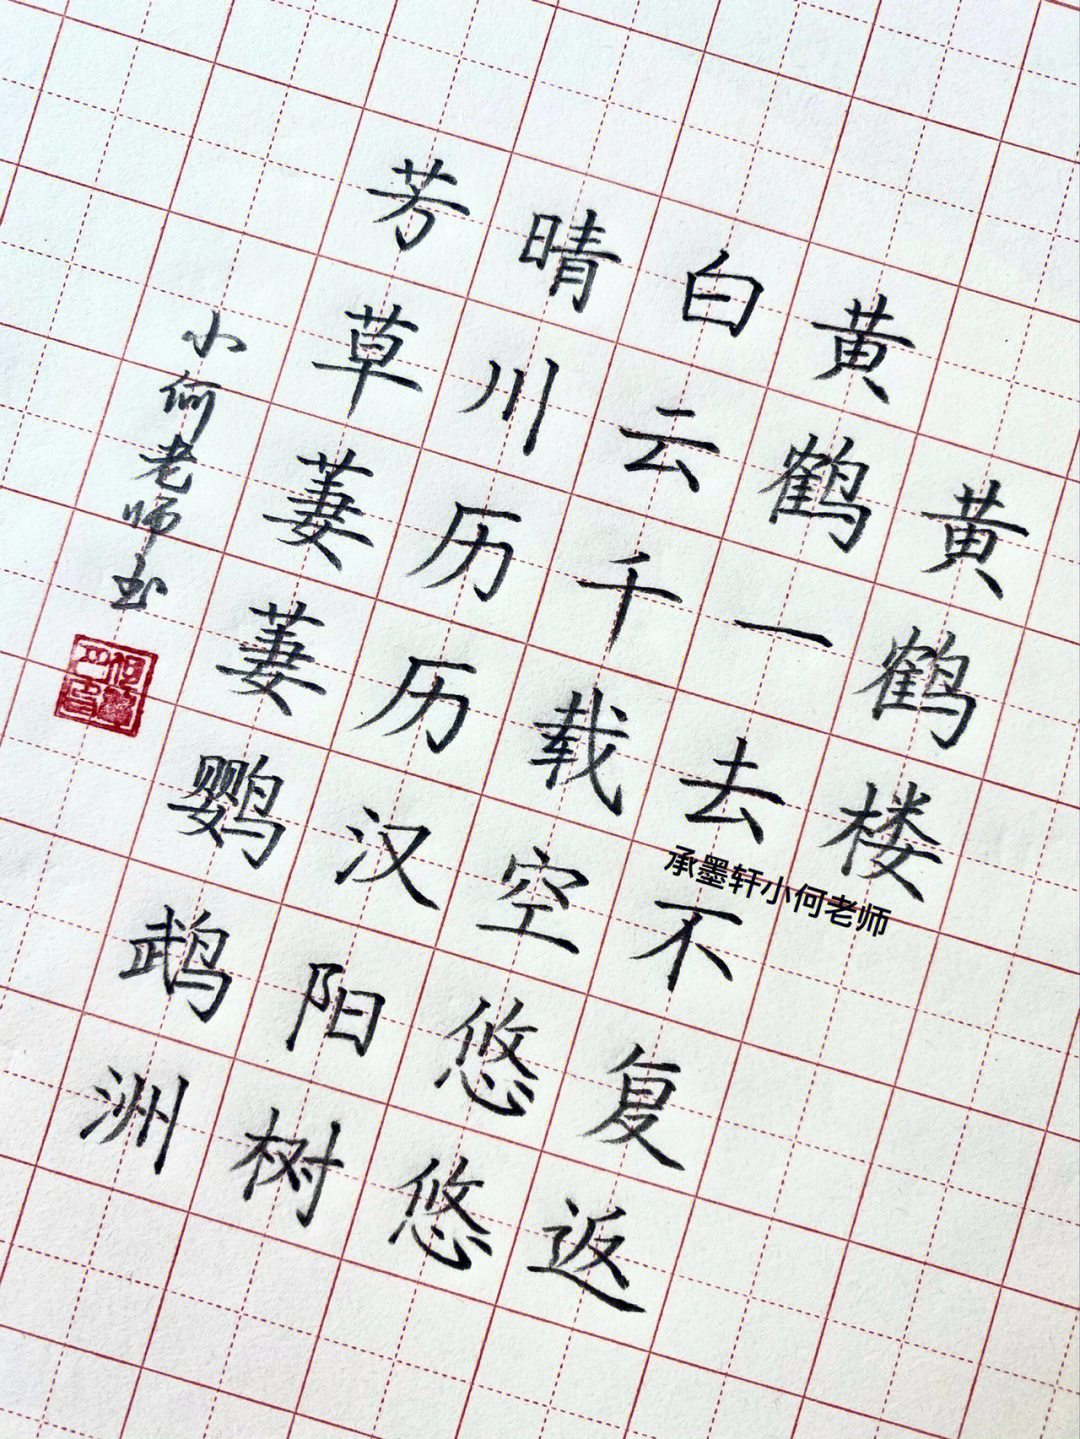 黄鹤楼
黄鹤一去不复返
白云千载空悠悠
晴川历历汉阳树
芳草萋萋鹦鹉洲
小何老师书
承墨轩小何老师